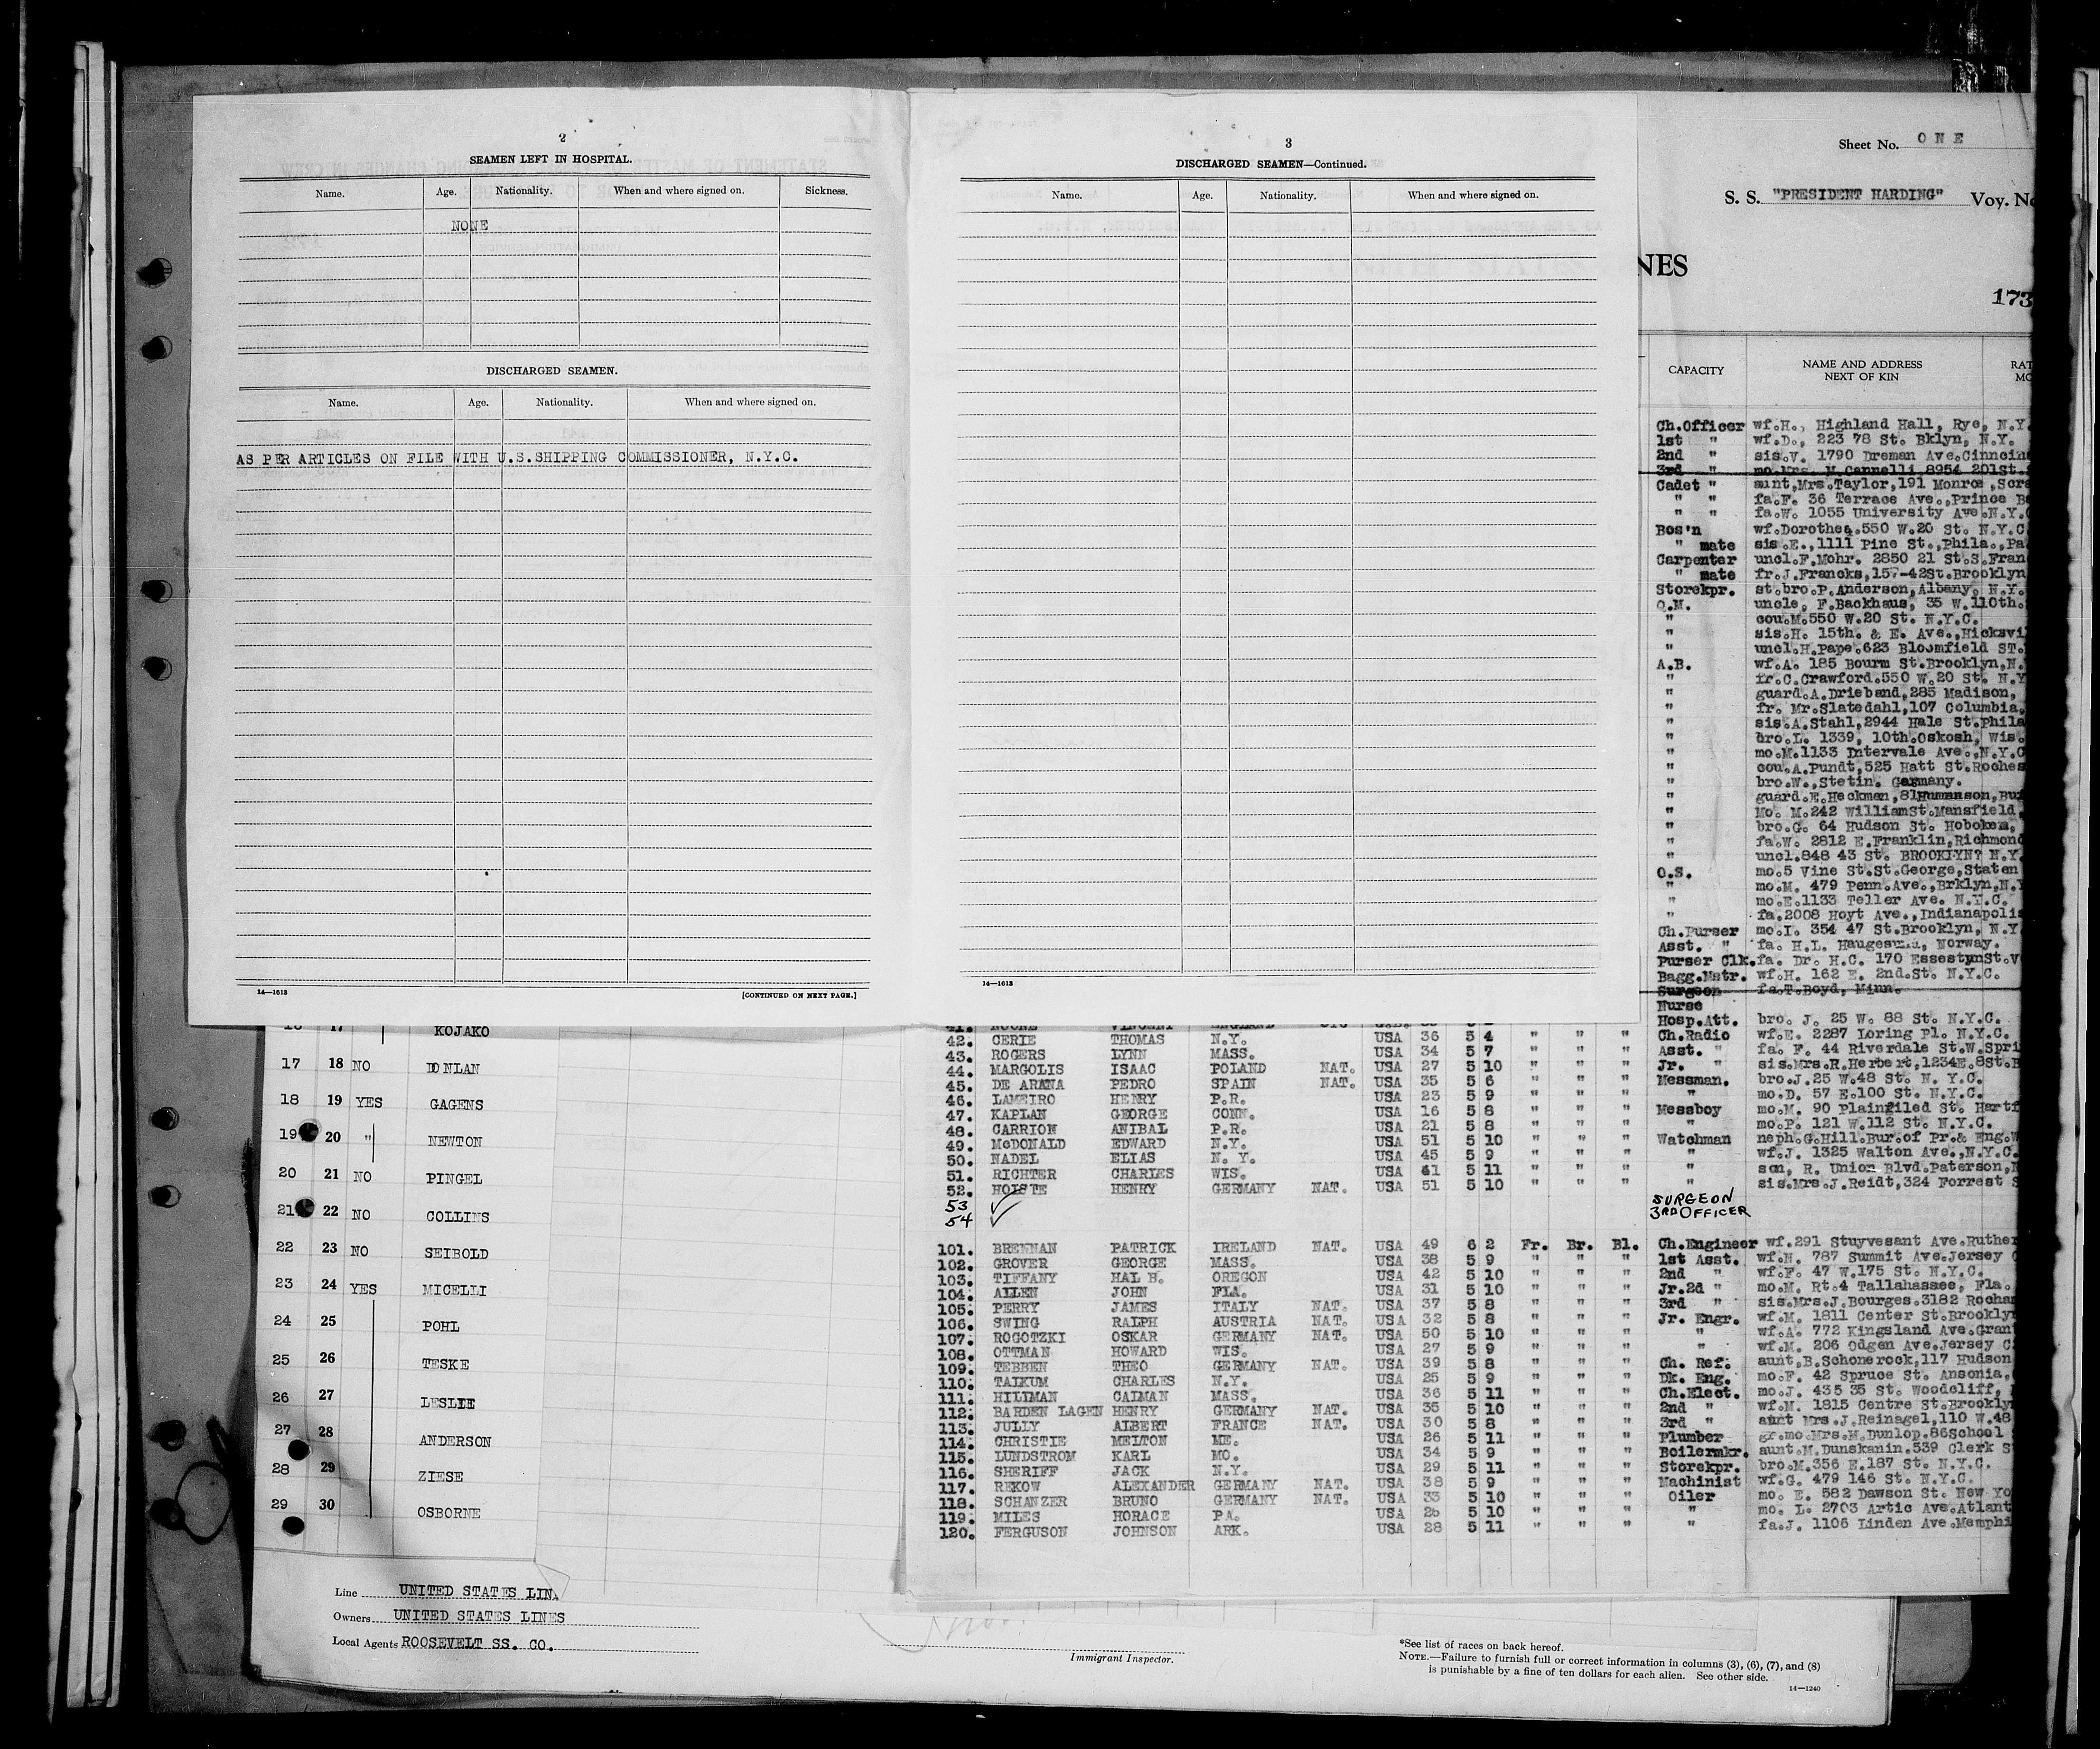 2
SEAMEN LEFT IN HOSPITAL.
Name. Age. Nationality. When and where signed on. Sickness.
NONE
DISCHARGED SEAMEN.
Name. Age. Nationality. When and where signed on.
AS PER ARTICLES ON FILE WITH U.S.SHIPPING COMMISSIONER, N.Y.C.
14—1613
[CONTINUED ON NEXT PAGE.]
3
DISCHARGED SEAMEN—Continued.
Name. Age. Nationality. When and where signed on.
14—1613
Sheet No. ONE
S. S. "PRESIDENT HARDING" Voy. No
NES
173
CAPACITY NAME AND ADDRESS NEXT OF KIN
Ch.Officer wf.H., Highland Hall, Rye, N.Y.
1st " wf.D., 223 78 St. Bklyn, N.Y.
2nd " sis.V. 1790 Dreman Ave.Cinncin
3rd " mo.Mrs. M.Cannelli 8954 201St.
Cadet " aunt,Mrs.Taylor,191 Monroe ,Scra
" " fa.F. 36 Terrace Ave.,Prince B
" " fa.W. 1055 University Ave.N.Y.
Bos'n wf.Dorothea.550 W.20 St. N.Y.C
" mate sis.E.,1111 Pine St.,Phila.,Pa
Carpenter uncl.F.Mohr. 2850 21 St.S.Fran
" mate fr.J.Francks,157-42St.Brooklyn
Storekpr. st.bro.P.Anderson,Albany. N.Y.
Q.M. uncle, F.Backhaus, 35 W.110th.
" cou.M.550 W.20 St. N.Y.C.
" sis.H. 15th. & E. Ave.,Hicksvi
" uncl.H.Pape.623 Bloomfield ST.
A.B. wf.A. 185 Bourm St.Brooklyn,N.
" fr.C.Crawford.550 W.20 St. N.Y
" guard.A.Drieband,285 Madison,
" fr. Mr.Slatedahl,107 Columbia,
" sis.A.Stahl,2944 Hale St.Phila
" bro.L. 1339, 10th.Oskosh, Wis.
" mo.M.1133 Intervale Ave.,N.Y.C
" cou.A.Pundt,525 Hatt St.Roches
" bro.W.,Stetin. Germany.
" guard.E.Heckman,81
" Mo. M.242 WilliamSt.Mansfield
" bro.G. 64 Hudson St. Hoboken,
" fa.W. 2812 E.Franklin,Richmond
" uncl.848 43 St. BROOKLYN? N.Y.
O.S. mo.5 Vine St.St.George,Staten
" mo.M. 479 Penn.Ave.,Brklyn,N.Y
" mo.E.1133 Teller Ave. N.Y.C.
" fa.2008 Hoyt Ave.,Indianapolis
Ch.Purser mo.I. 354 47 St.Brooklyn, N.Y
Asst. " fa. H.L. Haugesund, Norway.
Purser Clk. fa. Dr. H.C. 170 EssestynSt.V
Bagg.Mstr. wf.H. 162 E. 2nd.St. N.Y.C.
Surgeon fa.T.Boyd, Minn.
Nurse
Hosp.Att. bro. J. 25 W. 88 St. N.Y.C.
42. CERIE THOMAS N.Y. USA 36 5 4 " " " Ch.Radio wf.E. 2287 Loring Pl. N.Y.C.
43. ROGERS LYNN MASS. USA 34 5 7 " " " Asst. " fa. F. 44 Riverdale St.W.Spri
44. MARGOLIS ISAAC POLAND NAT. USA 27 5 10 " " " Jr. " sis.Mrs.R.Herbert,1234E.8St.B
45. DE ARANA PEDRO SPAIN NAT. USA 35 5 6 " " " Messman. bro.J.25 W.48 St. N. Y.C.
46. LAMEIRO HENRY P.R. USA 23 5 9 " " " " mo.D. 57 E.100 St. N.Y.C.
47. KAPLAN GEORGE CONN. USA 16 5 8 " " " Messboy mo.M. 90 Plainfiled St. Hartf
48. CARRION ANIBAL P.R. USA 21 5 8 " " " " mo.P. 121 W.112 St. N.Y.C.
49. McDONALD EDWARD N.Y. USA 51 5 10 " " " Watchman neph.G.Hill.Bur.of Pr.& Eng.W
50. NADEL ELIAS N. Y. USA 45 5 9 " " " " wf.J. 1325 Walton Ave.,N.Y.C.
51. RICHTER CHARLES WIS. USA 41 5 11 " " " " son, R. Union Blvd.Paterson,N
52. HOISTE HENRY GERMANY NAT. USA 51 5 10 " " " " sis.Mrs.J.Reidt,324 Forrest S
53 SURGEON
54 3RD OFFICER
101. BRENNAN PATRICK IRELAND NAT. USA 49 6 2 Fr. Br. Bl. Ch.Engineer wf.291 Stuyvesant Ave.Ruther
102. GROVER GEORGE MASS. USA 38 5 9 " " " 1st Asst. wf.N. 787 Summit Ave.Jersey C
103. TIFFANY HAL B. OREGON USA 42 5 10 " " " 2nd " wf.F. 47 W.175 St. N.Y.C.
104. ALLEN JOHN FLA. USA 31 5 10 " " " Jr.2d " mo.M. Rt.4 Tallahassee, Fla.
105. PERRY JAMES ITALY NAT. USA 37 5 8 " " " 3rd " sis.Mrs.J.Bourges.3182 Rocham
106. SWING RALPH AUSTRIA NAT. USA 32 5 8 " " " Jr. Engr. wf.M. 1811 Center St.Brooklyn
107. ROGOTZKI OSKAR GERMANY NAT. USA 50 5 10 " " " " wf.A. 772 Kingsland Ave.Grant
108. OTTMAN HOWARD WIS. USA 27 5 9 " " " " wf.M. 206 Odgen Ave.Jersey C.
109. TEBBEN THEO GERMANY NAT. USA 39 5 8 " " " Ch. Ref. aunt,B.Schonerock,117 Hudson
110. TALKUM CHARLES N.Y. USA 25 5 9 " " " Dk. Eng. mo.F. 42 Spruce St. Ansonia,
111. HILLMAN CALMAN MASS. USA 36 5 11 " " " Ch.Elect. mo.J. 435 35 St. Woodcliff,
112. BARDEN LAGEN HENRY GERMANY NAT. USA 35 5 10 " " " 2nd " wf.M. 1815 Centre St.Brooklyn
113. JULLY ALBERT FRANCE NAT. USA 30 5 8 " " " 3rd " aunt Mrs.J.Reinagel,110 W.48
114. CHRISTIE MELTON ME. USA 26 5 11 " " " Plumber gr.mo.Mrs.M.Dunlop.86School
115. LUNDSTROM KARL MO. USA 34 5 9 " " " Boilermkr. aunt.M.Dunskanin.539 Clerk S
116. SHERIFF JACK N.Y. USA 29 5 11 " " " Storekpr. bro.M.356 E.187 St. N.Y.C.
117. REKOW ALEXANDER GERMANY NAT. USA 38 5 9 " " " Machinist wf.G. 479 146 St. N.Y.C.
118. SCHANZER BRUNO GERMANY NAT. USA 33 5 10 " " " Oiler mo. E. 582 Dawson St. New Yo
119. MILES HORACE PA. USA 26 5 10 " " " " mo. L. 2703 Artic Ave.Atlant
120. FERGUSON JOHNSON ARK. USA 28 5 11 " " " " fa.J. 1106 Linden Ave.Memphi
16 17 KOJAKO
17 18 NO DONLAN
18 19 YES GAGENS
19 20 " NEWTON
20 21 NO PINGEL
21 22 NO COLLINS
22 23 NO SEIBOLD
23 24 YES MICELLI
24 25 POHL
25 26 TESKE
26 27 LESLIE
27 28 ANDERSON
28 29 ZIESE
29 30 OSBORNE
Line UNITED STATES LIN
Owners UNITED STATES LINES
Local Agents ROOSEVELT SS. CO.
Immigrant Inspector.
*See list of races on back hereof.
NOTE.—Failure to furnish full or correct information in columns (3), (6), (7), and (8)
is punishable by a fine of ten dollars for each alien. See other side.
14—1240